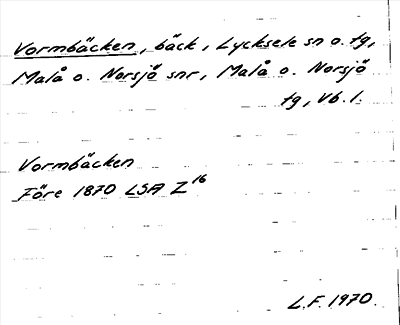 Vormbäcken, bäck, Lycksele sn o. tg,
Malå o. Norsjö snr, Malå o. Norsjö
tg, Vb. l.
Vormbäcken
Före 1870 LSA Z¹⁶
L.F. 1970.